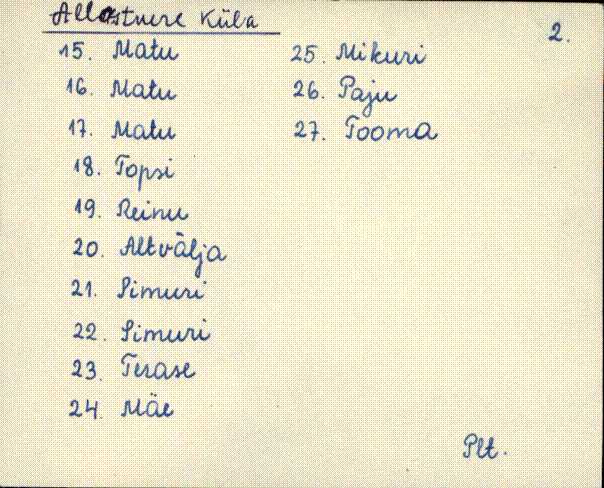 Allastvere Küla
2.
15. Matu
16. Matu
17. Matu
18. Topsi
19. Reinu
20. Altvälja
21. Simuri
22. Simuri
23. Terase
24. Mäe
25. Mikuri
26. Paju
27. Tooma
Plt.